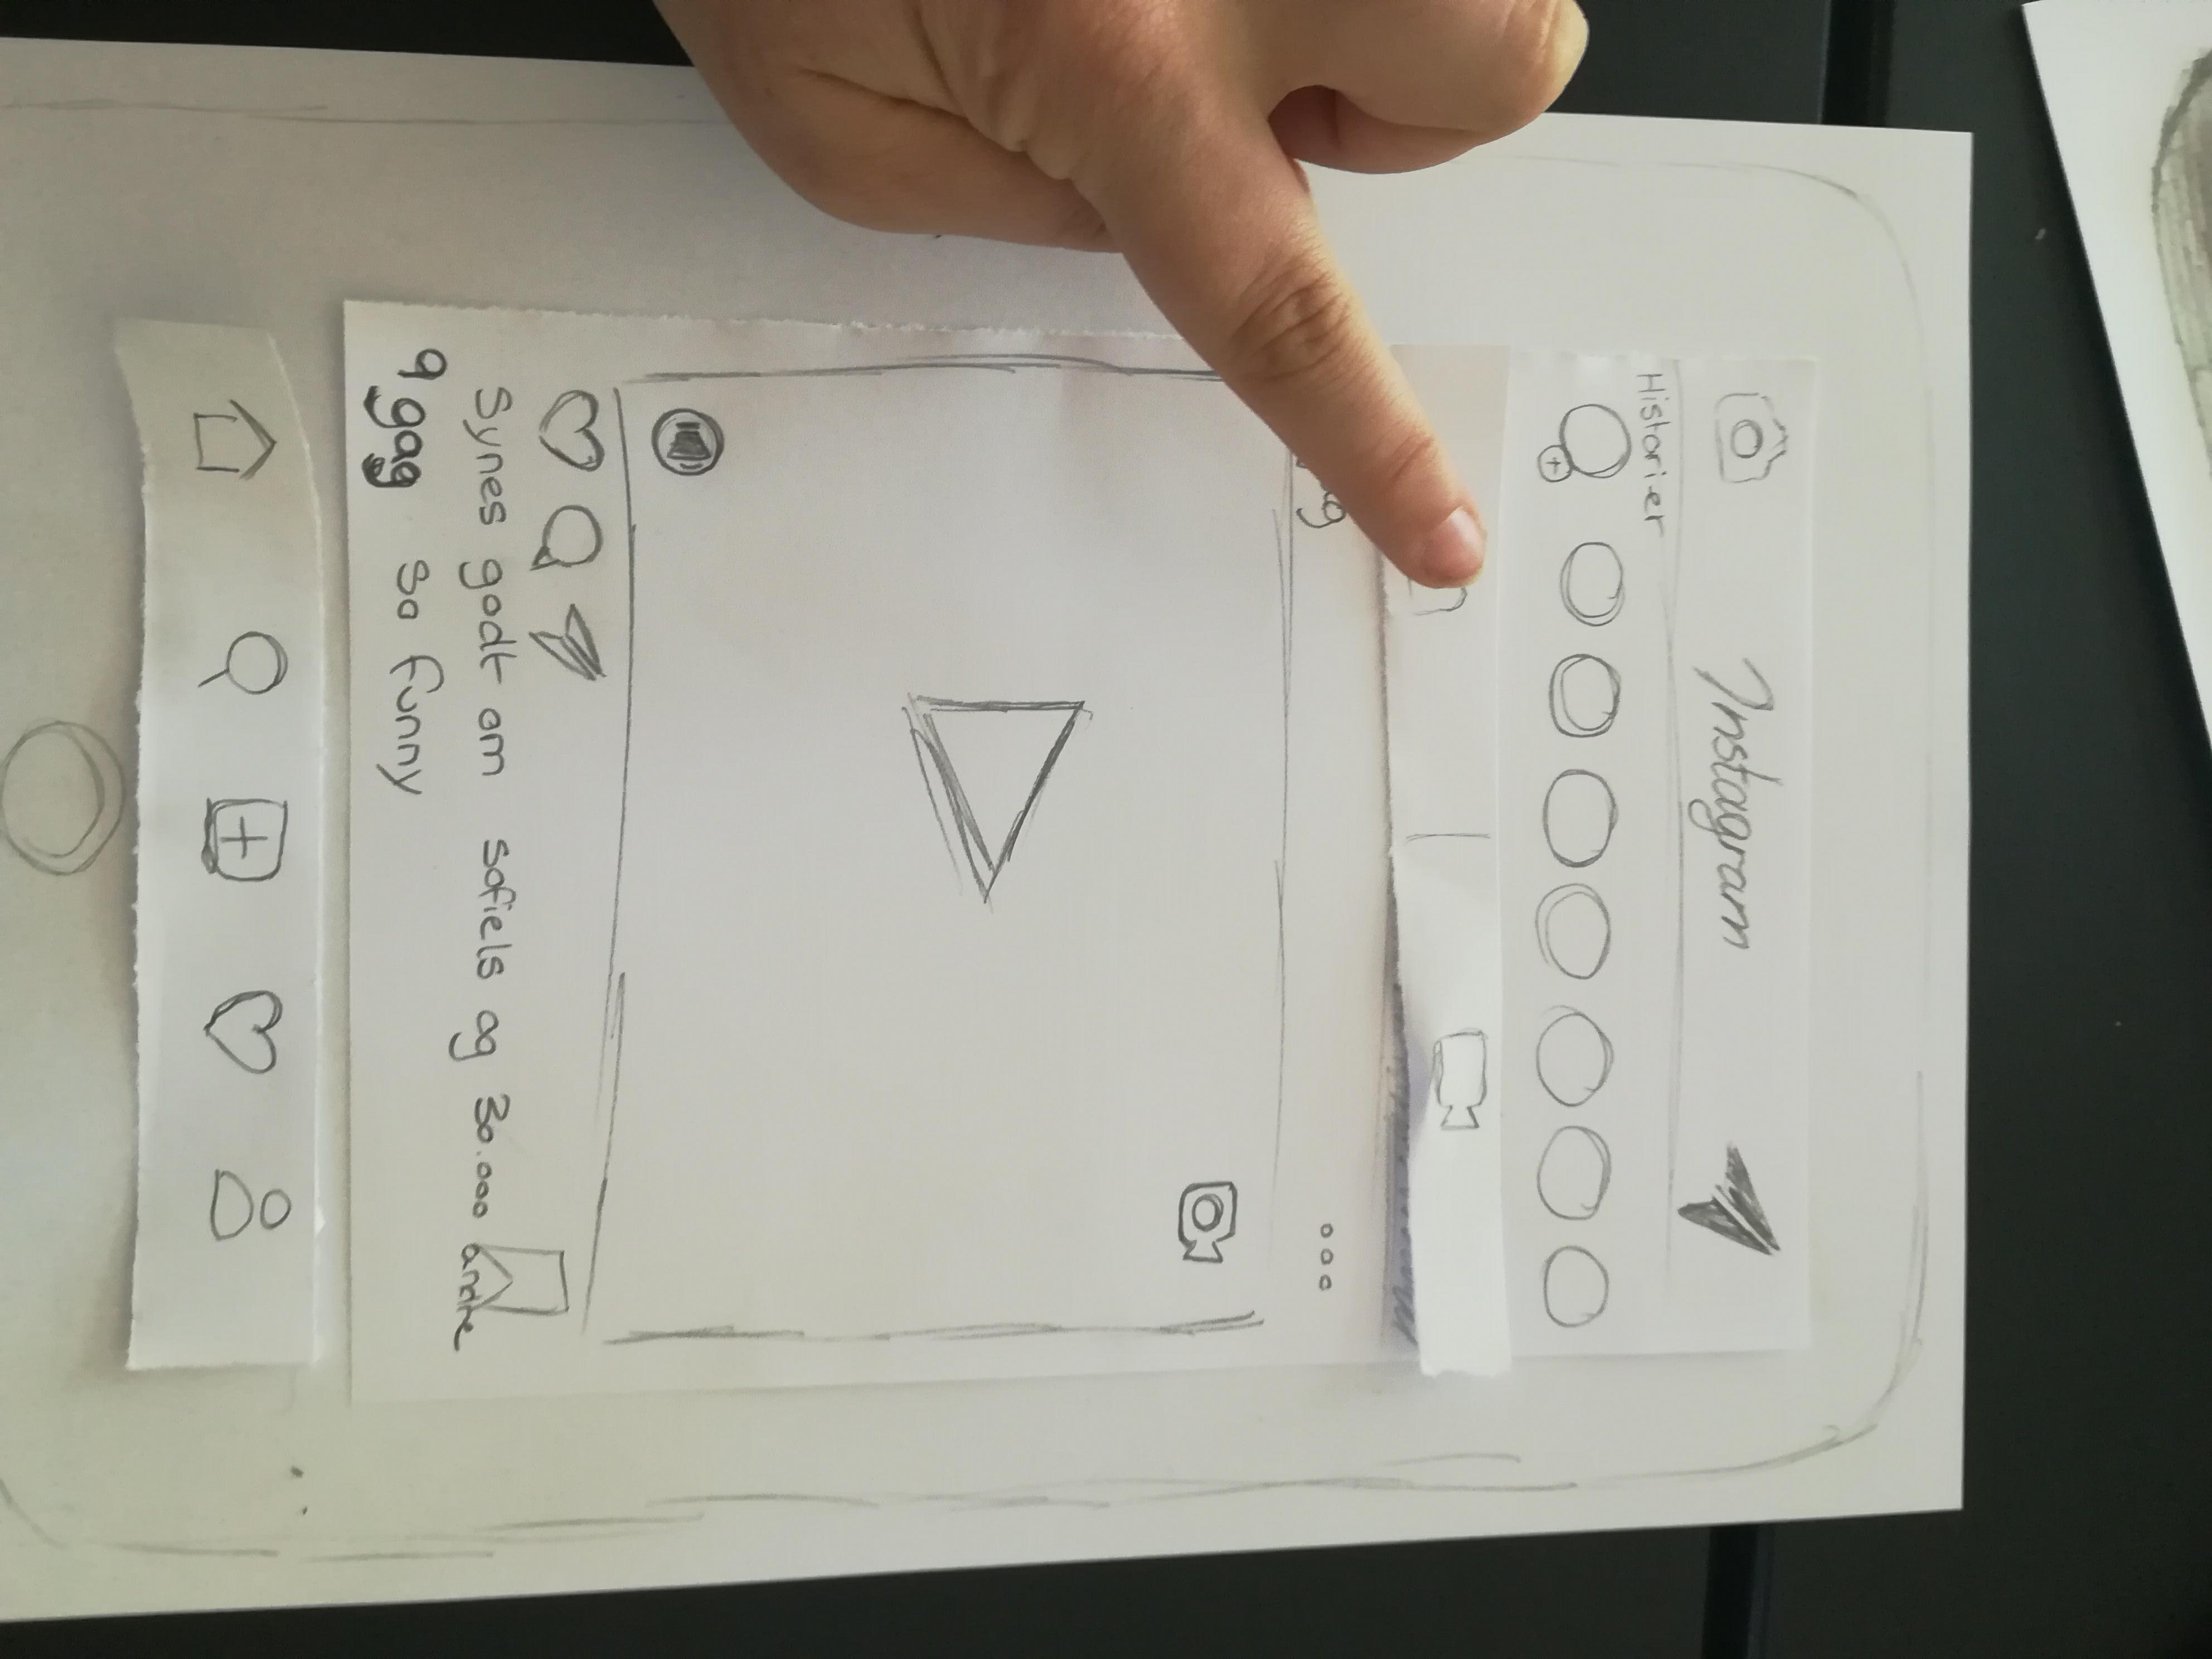 Instagram
Historier
Synes godt om sofiels og 30.000 andre
9gag so funny